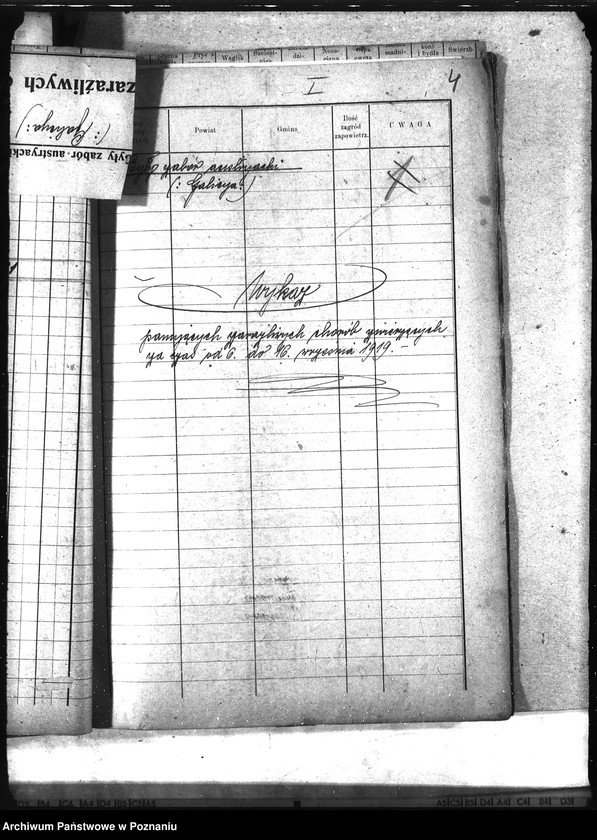 Wąglik
Świerzb
koni
i bydła
zaraźliwych
(: Galicya :)
Były zabór austryacki
I
4
Powiat
Gmina
Ilość
zagród
zapowietrz.
UWAGA
Były zabór austryacki
(: Galicya :)
Wykaz
panujących zaraźliwych chorób zwierzęcych
za czas od 6. do 16. września 1919. -
A5 C5 B5 D4 A4 C4 B4 D3
Archiwum Państwowe w Poznaniu